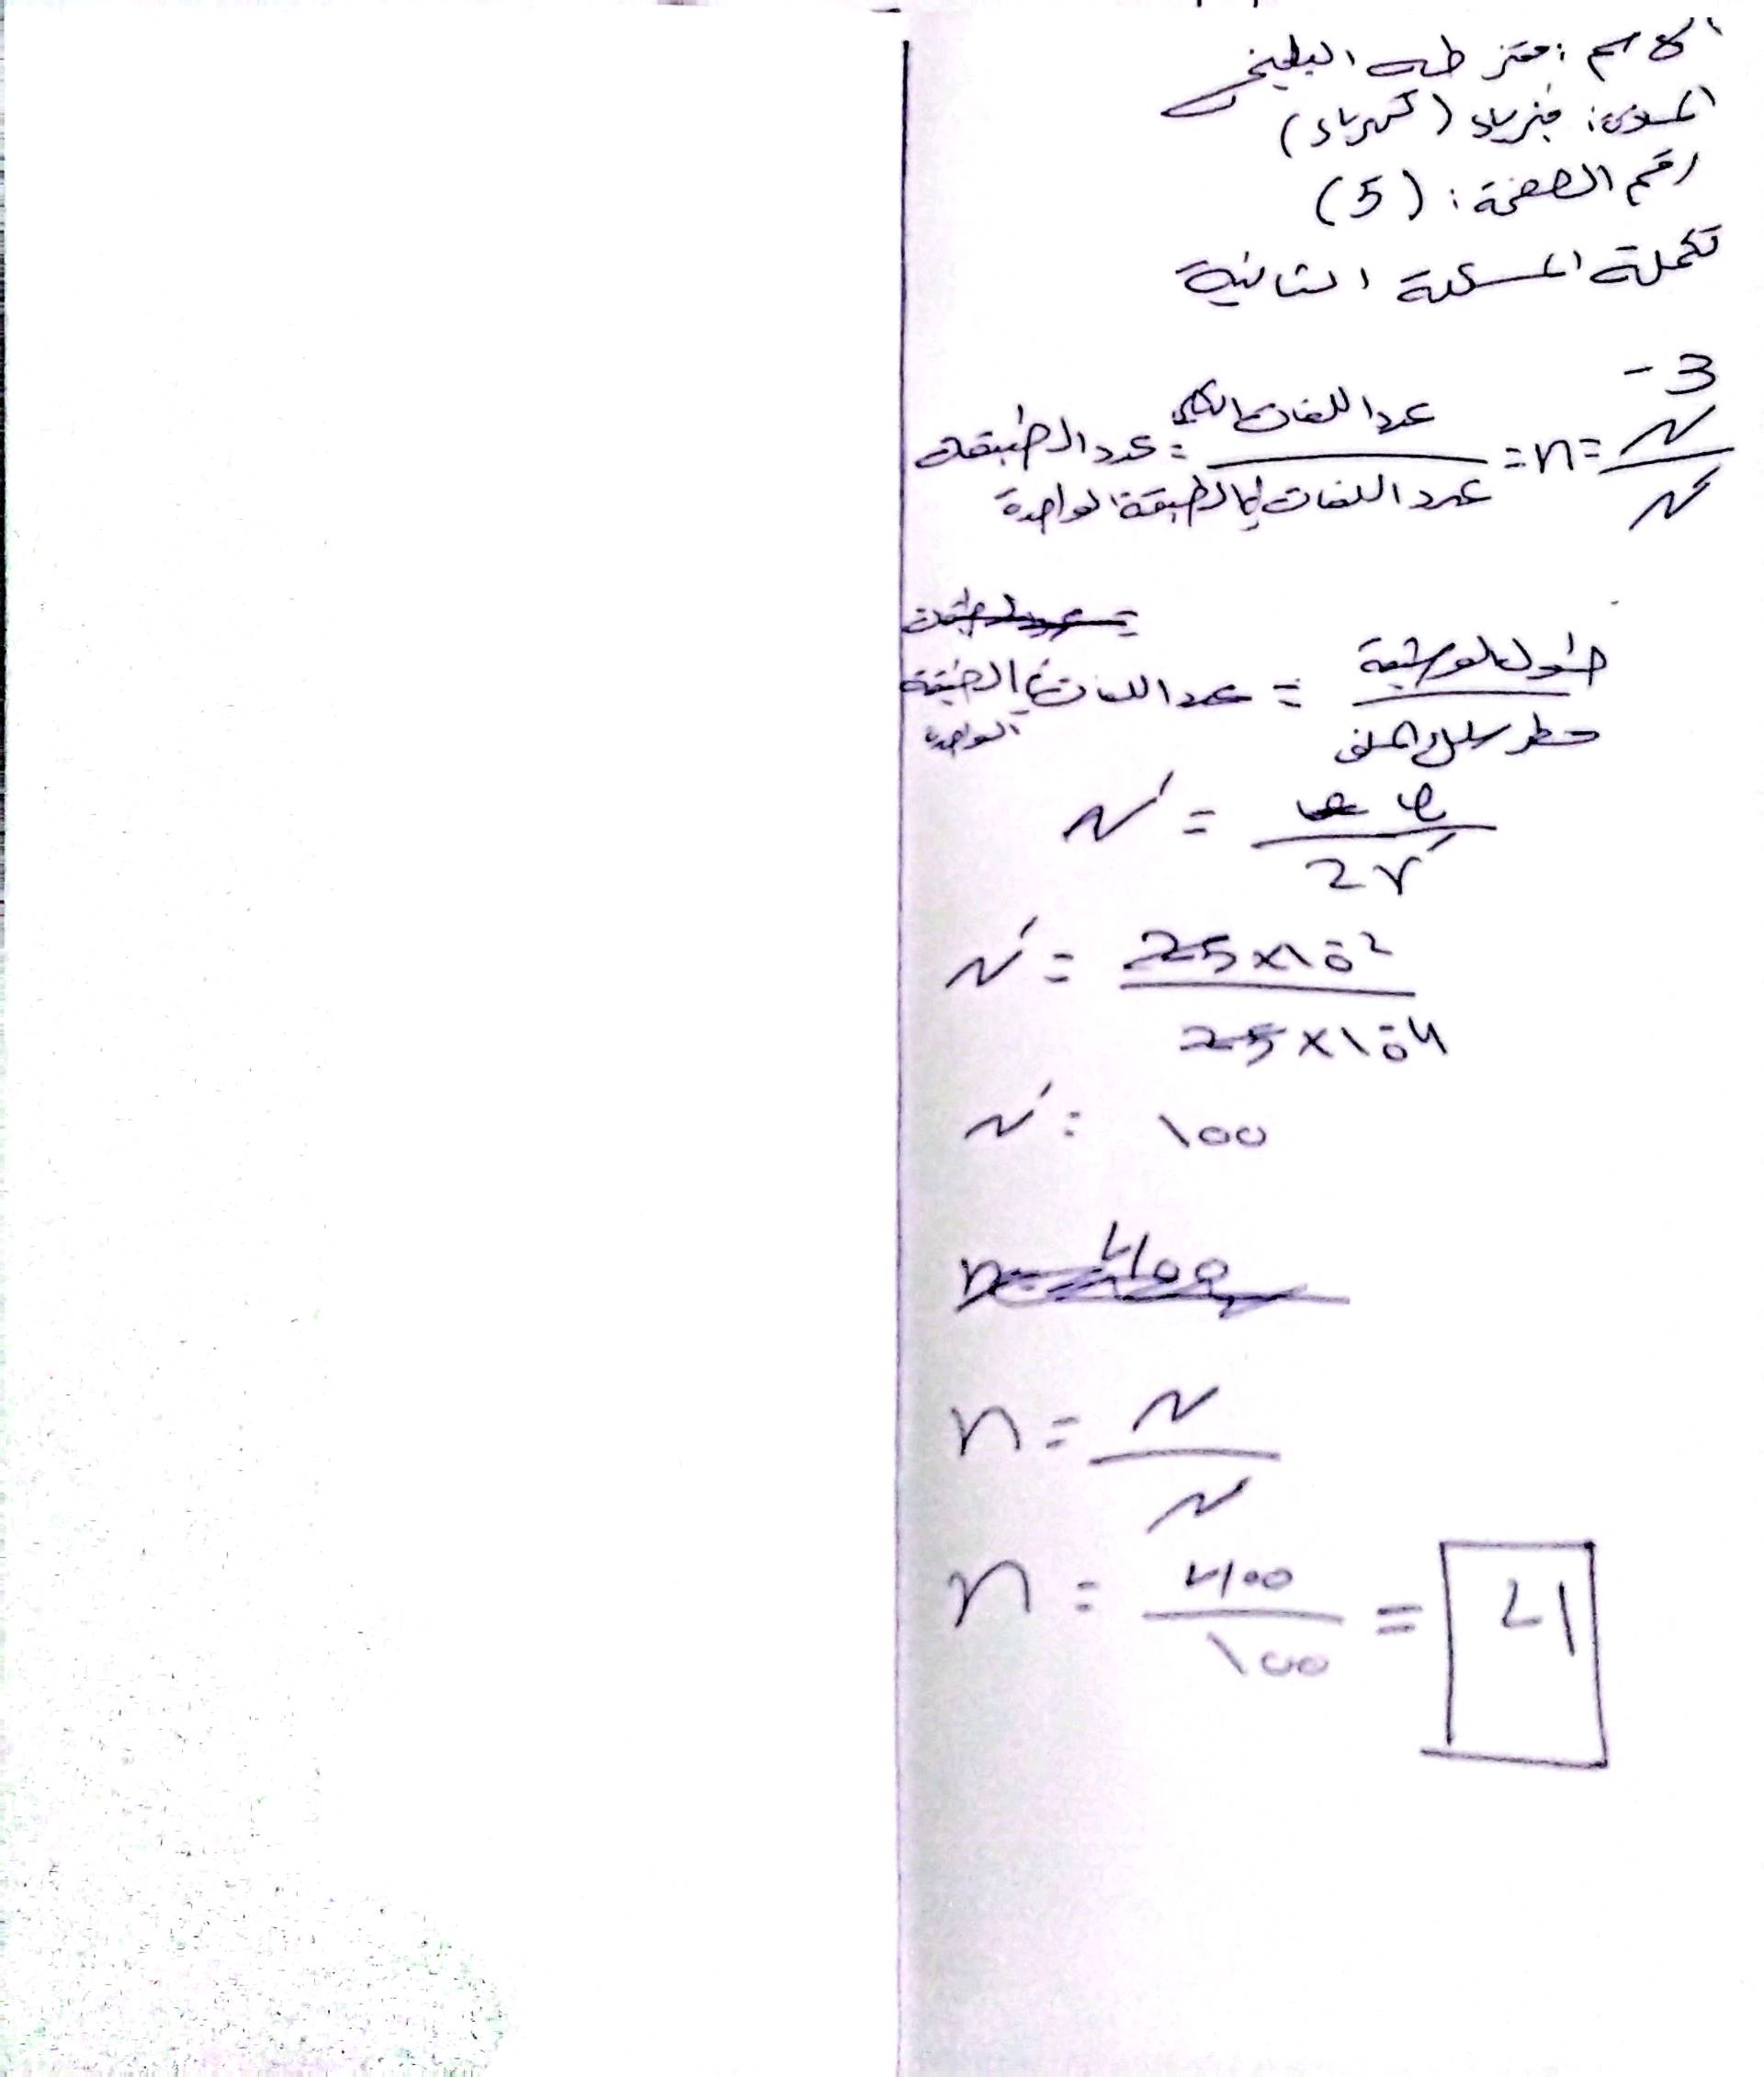 الاسم: معتز طه البطين
المستوى: فيزياء (كهرباء)
رقم الصفحة: (5)
تكملة المسألة الثانية
3 -
N/N' = n = عدد اللفات الكلي/عدد اللفات في الطبقة الواحدة = عدد الطبقات
طول الوشيعة/قطر سلك الملف = عدد اللفات في الطبقة الواحدة
N' = ℓ/2r'
N' = 25×10⁻²/25×10⁻⁴
N' = 100
n = 400
n = N/N'
n = 400/100 = 4